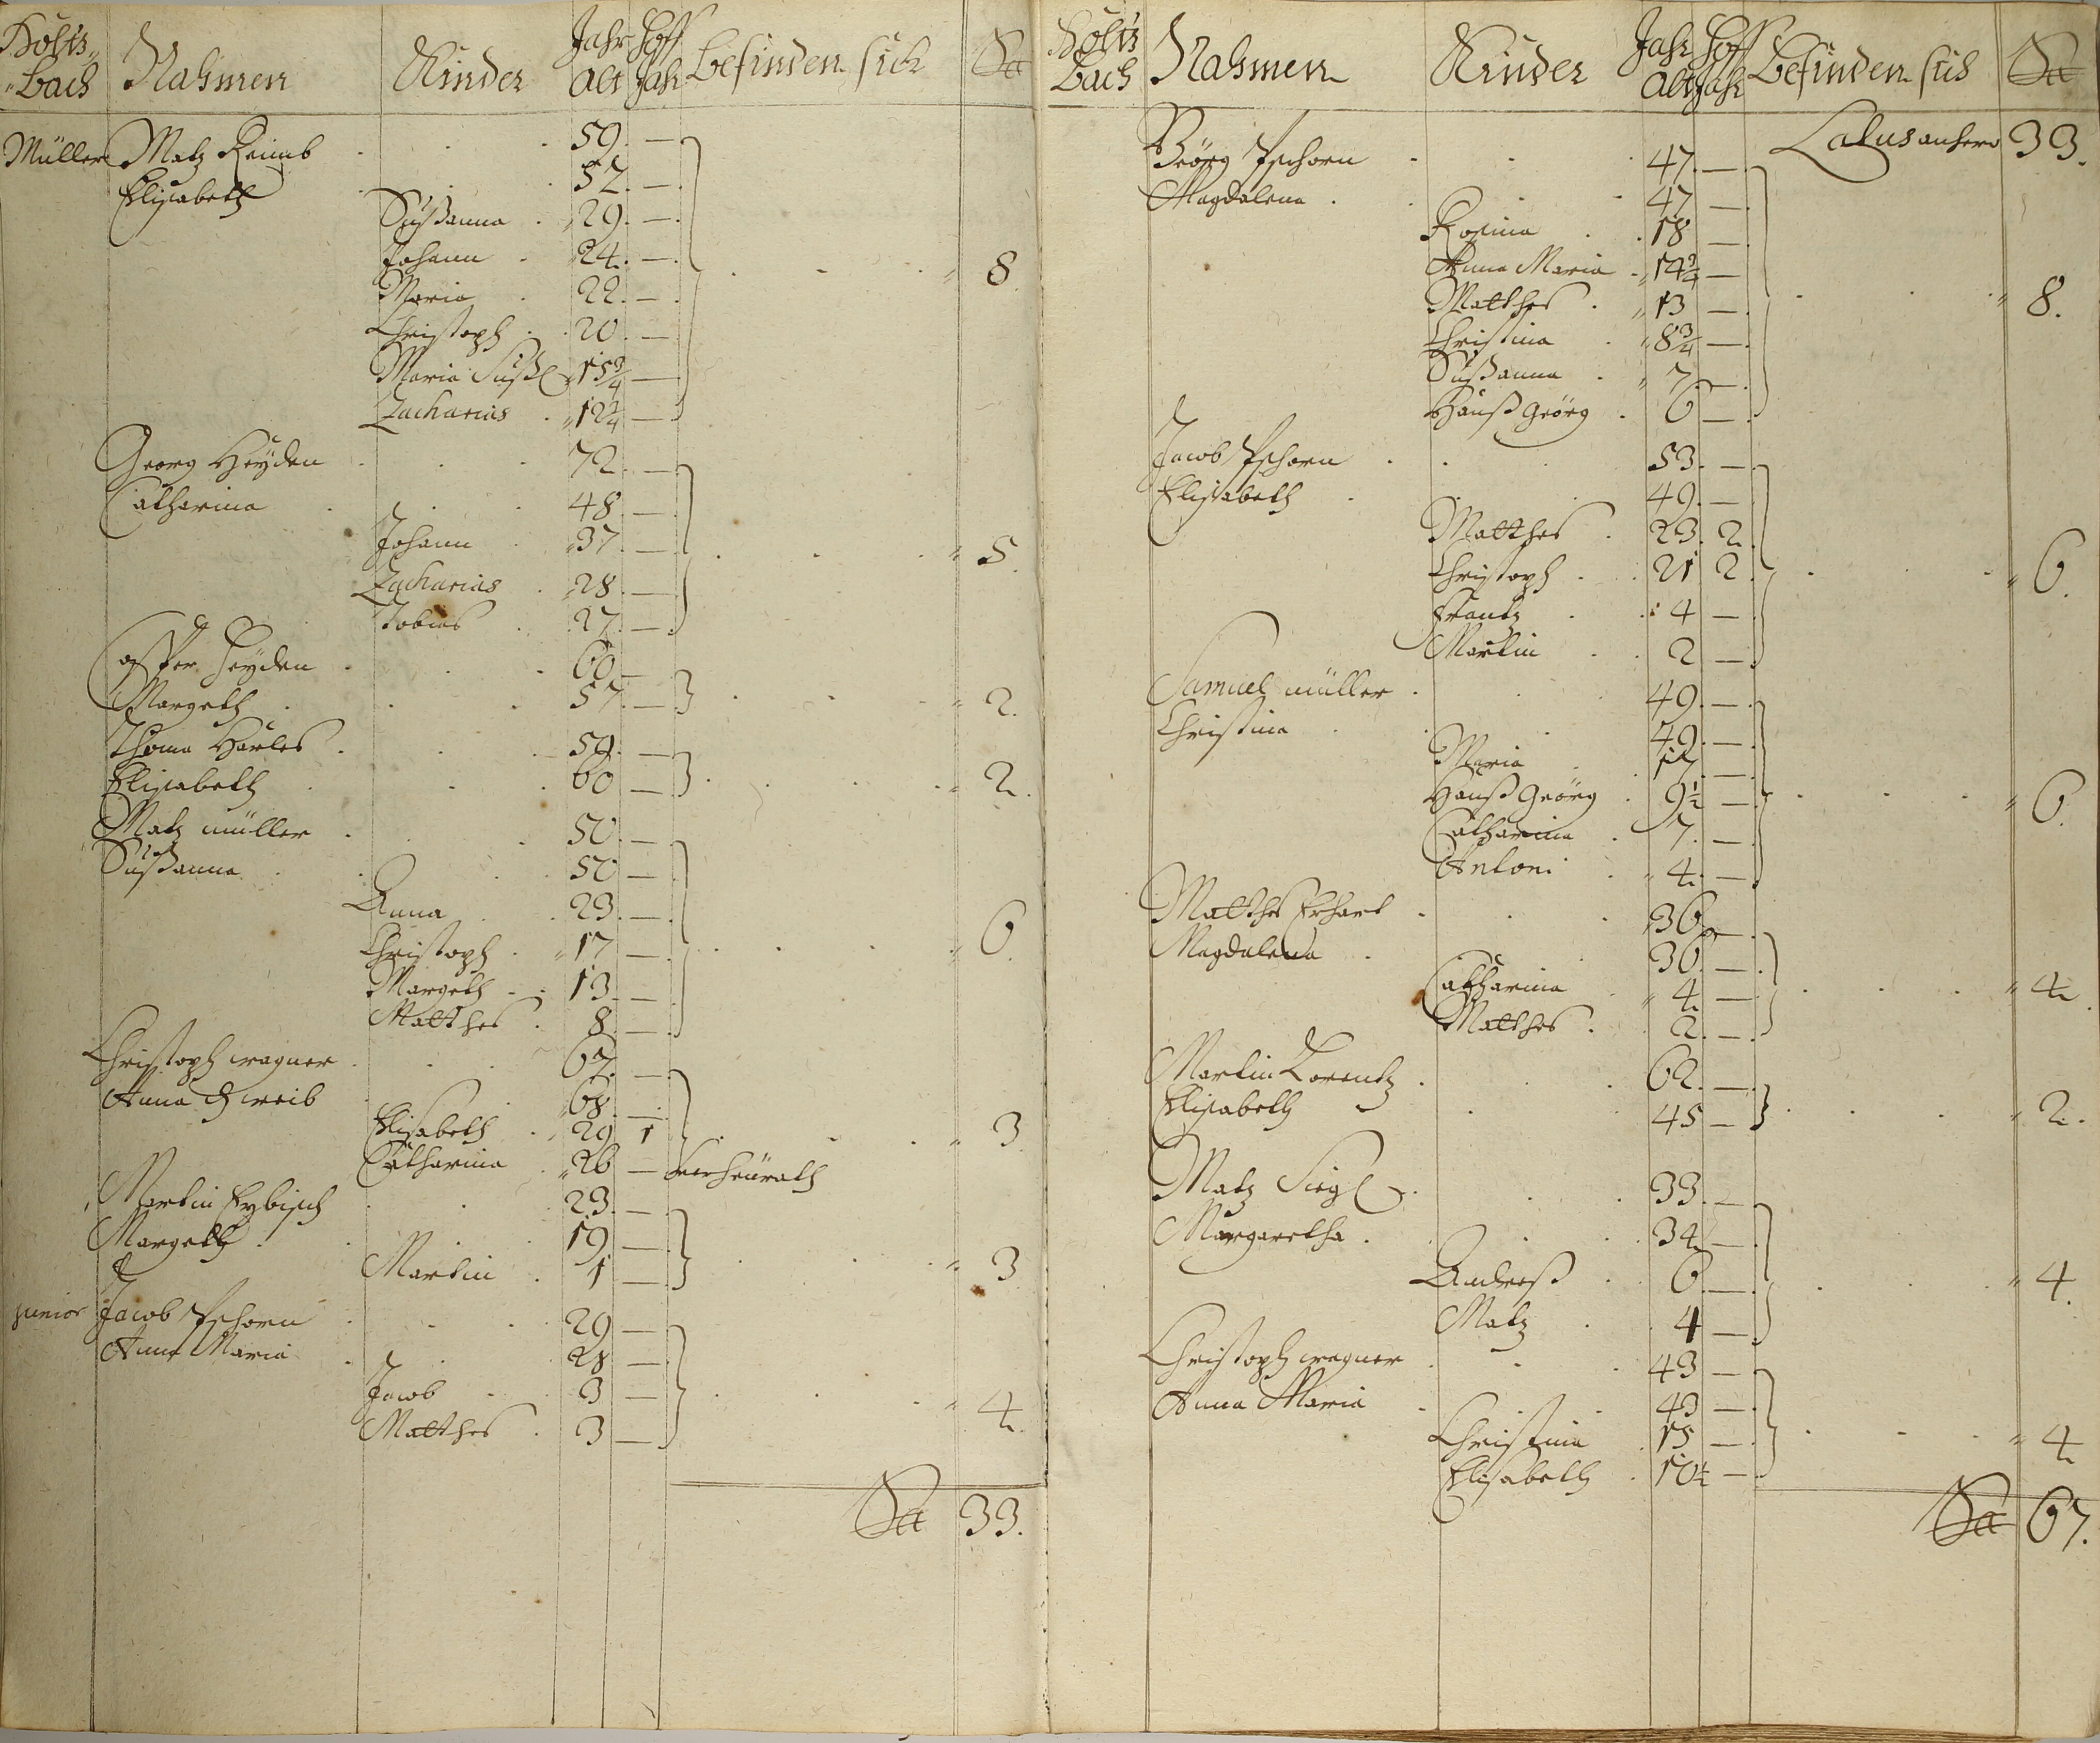 Holtz„ „bach Nahmen Kinder Jahr Alt Hoff Jahr Befinden sich Sa
Müller Matz Reimb 59. —
Elisabeth 52. —
Sußanna 29. —
Johann 24. —
Maria 22. — 8.
Christoph 20. —
Maria 15¾ —
Zacharias 12¼ —
Georg Heÿden 72. —
Catharina 48. —
Johann 37. — 5.
Zacharias 28. —
Tobias 27. —
Casper Heÿden 60 —
Margeth 57. — 2.
Thoma 59. —
Elisabeth 60 — 2.
Matz müller 50. —
Sußanna 50 —
Anna 23. —
Christoph 17 — 6.
Margeth 13. —
Matthes 8. —
Christoph wagner 67. —
Anna d. weib 68. —
Elisabeth 29 1 3.
Catharina 26 — verheürath
Martin 23. —
Margeth 19 —
Martin 1 — 3
junior Jacob Pschorn 29 —
Anna Maria 28 —
Jacob 3 —
Matthes 3 — 4.
Sa 33.
Holtz bach Nahmen Kinder Jahr Alt Hoff Jahr Befinden sich Sa
Latus anhero 33.
Geörg Pschorn 47. —
Magdalena 47 —
Rosina 18 —
Anna Maria 14¾ —
Matthes 13 — 8.
Christina 8¾ —
Sußanna 7. —
Hanß Geörg 6 —
Jacob Pschorn 53. —
Elisabeth 49. —
Matthes 23. 2.
Christoph 21 2. 6.
Frantz 4 —
Martin 2 —
Samuel müller 49. —
Christina 49. —
Maria 17. —
Hanß Geörg 9½ — 6.
Catharina 7. —
Antoni 4. —
Matthes Erhart 36 —
Magdalena 30. —
Catharina 4. — 4.
Matthes 2. —
Martin Lorentz 62. —
Elisabeth 45 — 2.
Matz Siegl 33. —
Margaretha 34 —
Andreß 6. — 4.
Matz 4 —
Christoph wagner 43 —
Anna Maria 43 —
Christina 15 — 4
Elisabeth 10½ —
Sa 67.